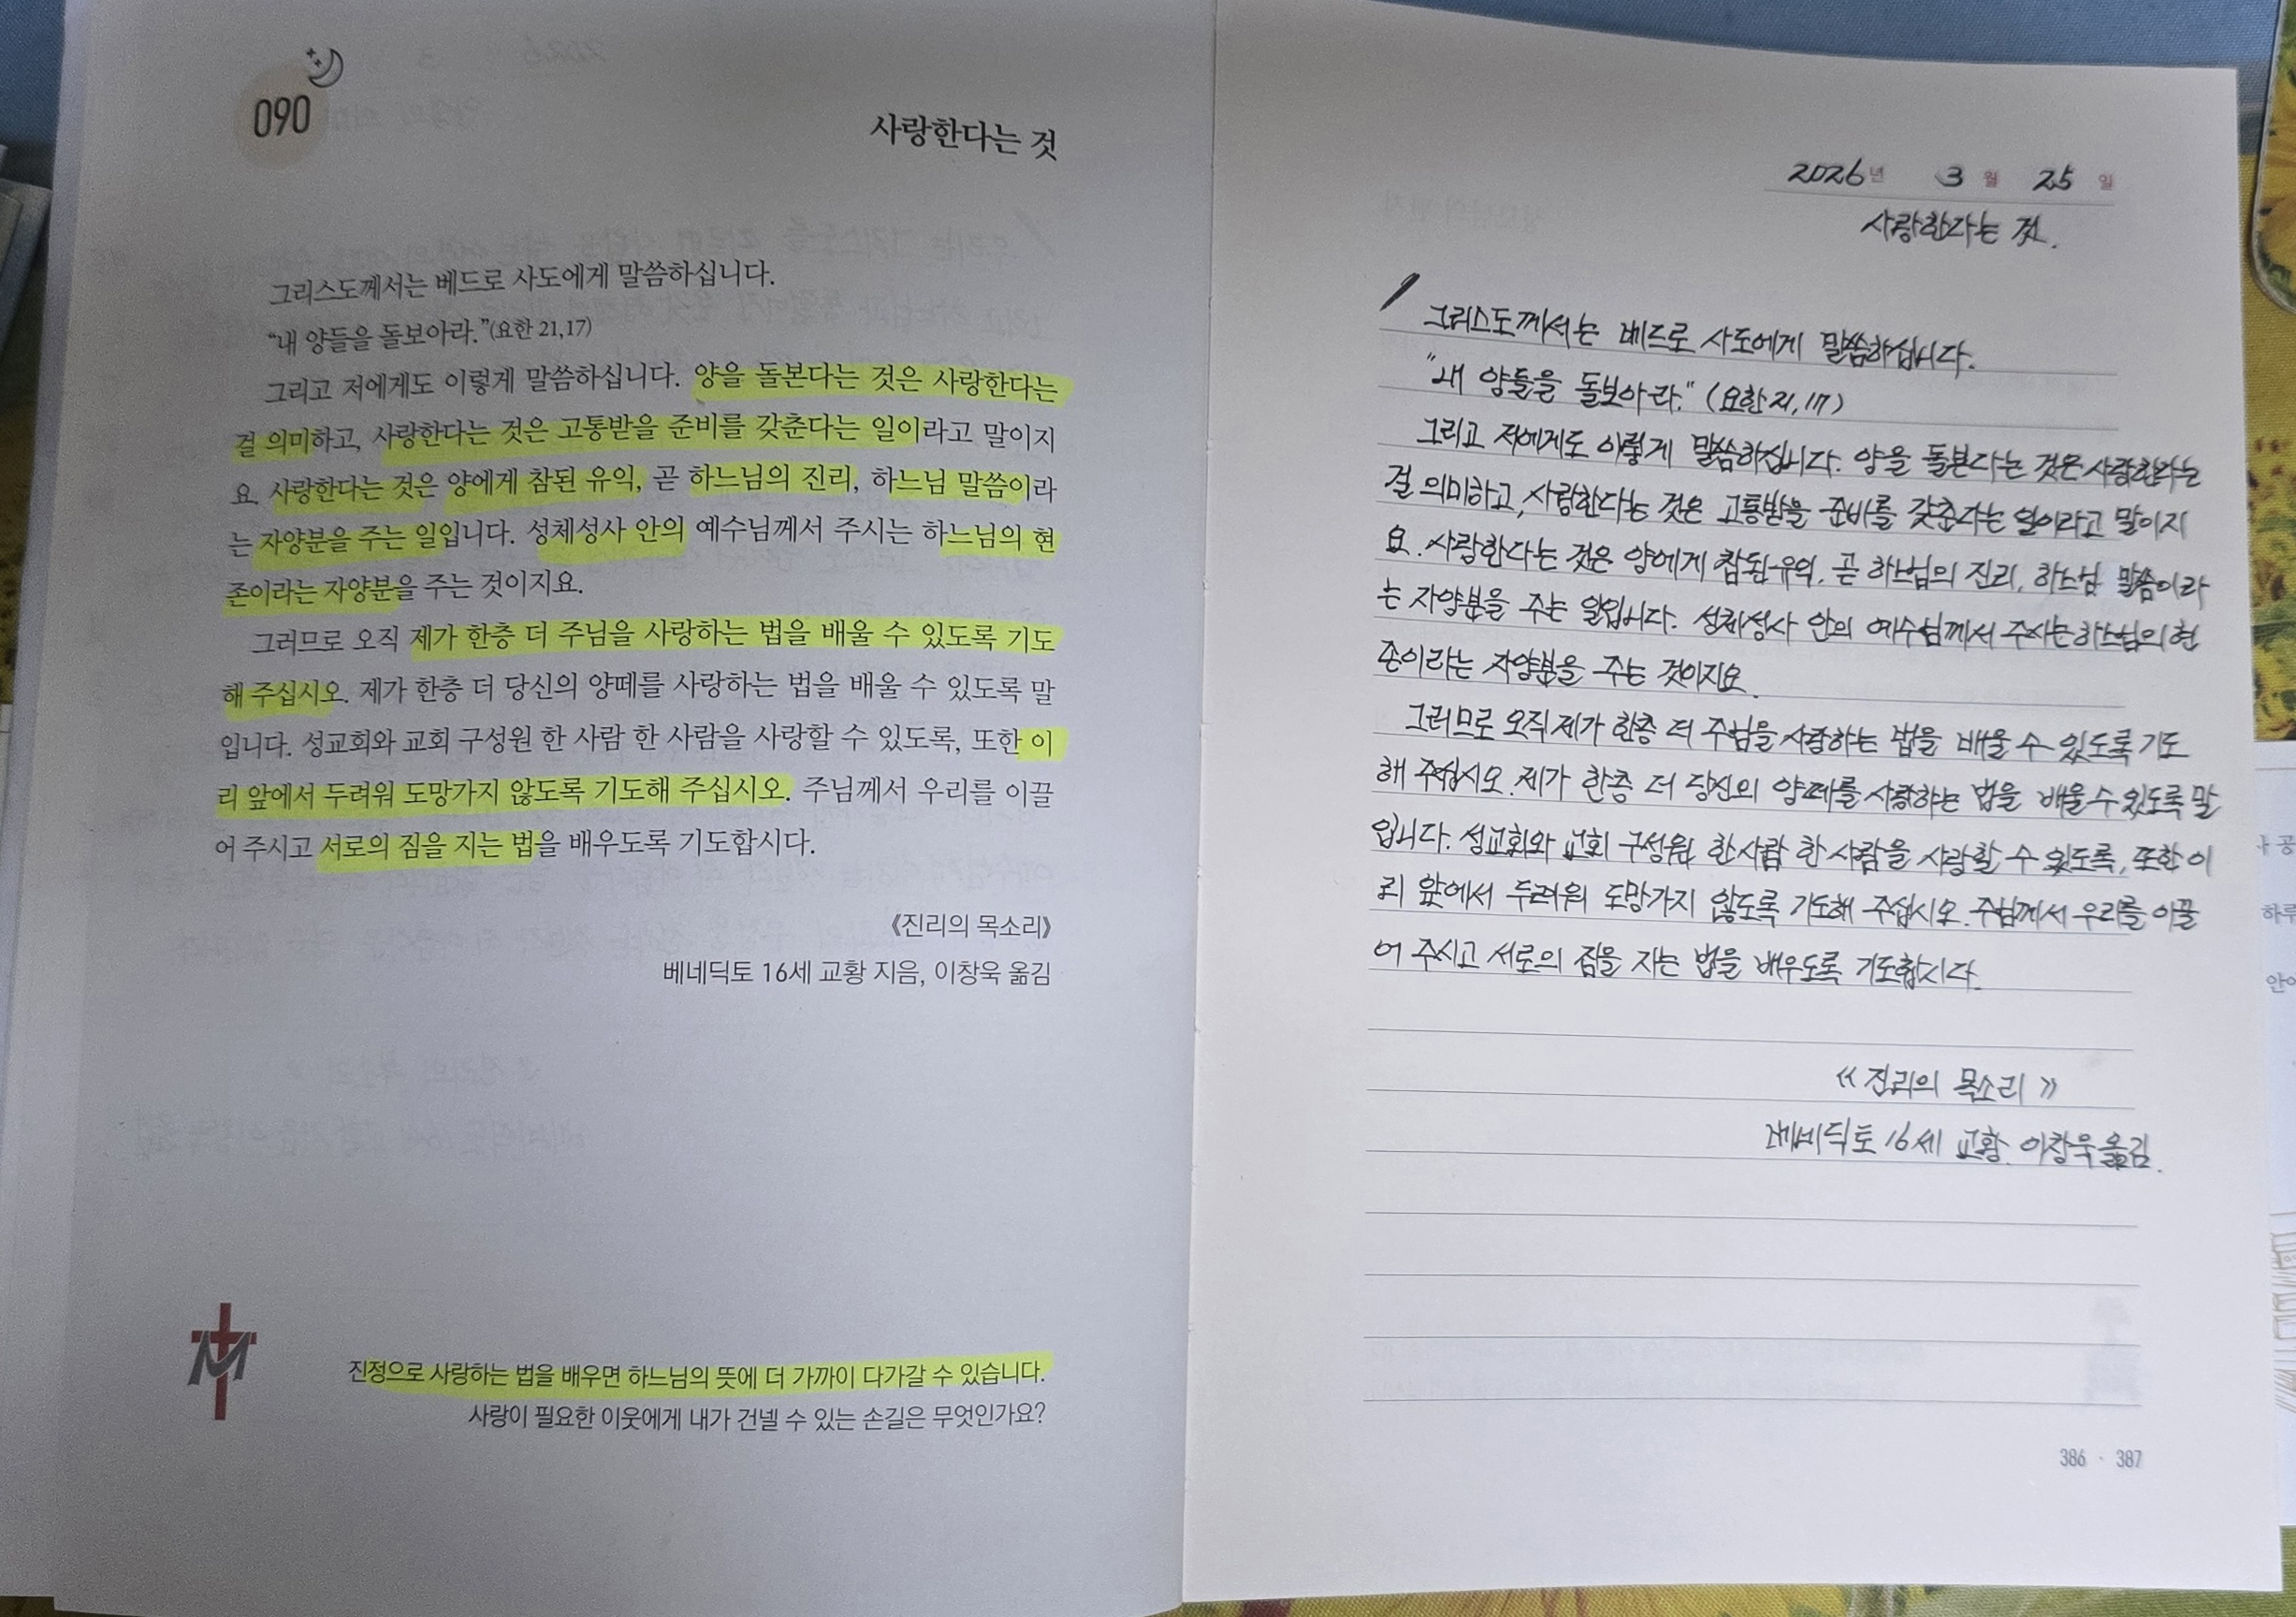 090
사랑한다는 것
그리스도께서는 베드로 사도에게 말씀하십니다.
“내 양들을 돌보아라.”(요한 21,17)
그리고 저에게도 이렇게 말씀하십니다. 양을 돌본다는 것은 사랑한다는
걸 의미하고, 사랑한다는 것은 고통받을 준비를 갖춘다는 일이라고 말이지
요. 사랑한다는 것은 양에게 참된 유익, 곧 하느님의 진리, 하느님 말씀이라
는 자양분을 주는 일입니다. 성체성사 안의 예수님께서 주시는 하느님의 현
존이라는 자양분을 주는 것이지요.
그러므로 오직 제가 한층 더 주님을 사랑하는 법을 배울 수 있도록 기도
해 주십시오. 제가 한층 더 당신의 양떼를 사랑하는 법을 배울 수 있도록 말
입니다. 성교회와 교회 구성원 한 사람 한 사람을 사랑할 수 있도록, 또한 이
리 앞에서 두려워 도망가지 않도록 기도해 주십시오. 주님께서 우리를 이끌
어 주시고 서로의 짐을 지는 법을 배우도록 기도합시다.
《진리의 목소리》
베네딕토 16세 교황 지음, 이창욱 옮김
진정으로 사랑하는 법을 배우면 하느님의 뜻에 더 가까이 다가갈 수 있습니다.
사랑이 필요한 이웃에게 내가 건넬 수 있는 손길은 무엇인가요?
2026년 3월 25일
사랑한다는 것.
그리스도께서는 베드로 사도에게 말씀하십니다.
"내 양들을 돌보아라." (요한 21,17)
그리고 저에게도 이렇게 말씀하십니다. 양을 돌본다는 것은 사랑한다는
걸 의미하고, 사랑한다는 것은 고통받을 준비를 갖춘다는 일이라고 말이지
요. 사랑한다는 것은 양에게 참된 유익, 곧 하느님의 진리, 하느님 말씀이라
는 자양분을 주는 일입니다. 성체성사 안의 예수님께서 주시는 하느님의 현
존이라는 자양분을 주는 것이지요.
그러므로 오직 제가 한층 더 주님을 사랑하는 법을 배울 수 있도록 기도
해 주십시오. 제가 한층 더 당신의 양떼를 사랑하는 법을 배울 수 있도록 말
입니다. 성교회와 교회 구성원 한 사람 한 사람을 사랑할 수 있도록, 또한 이
리 앞에서 두려워 도망가지 않도록 기도해 주십시오. 주님께서 우리를 이끌
어 주시고 서로의 짐을 지는 법을 배우도록 기도합시다.
《진리의 목소리》
베네딕토 16세 교황. 이창욱 옮김.
386 · 387